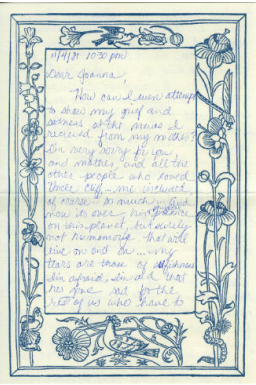 11/4/81 10:30 pm
Dear Joanna,
How can I even attempt
to show my grief and
sadness at the news I
received from my mother?
I'm very sorry for you
and mother, and all the
other people who loved
Uncle ... me included
of course, so much. And
now its over, his
on this planet, but surely
not his memory that will
live on and on ... my
tears are those of
I'm afraid, I'm sad that
hes gone sad for the
rest of us who have to